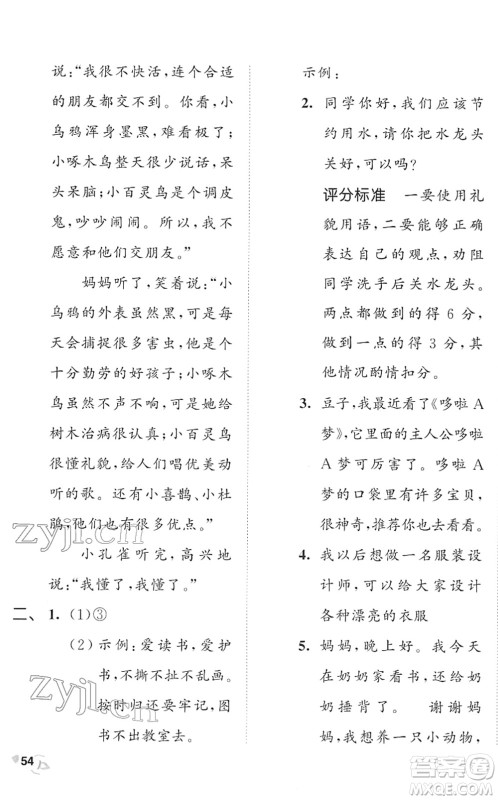 说：“我很不快活，连个合适
的朋友都交不到。你看，小
乌鸦浑身墨黑，难看极了；
小啄木鸟整天少说话，呆
头呆脑；小百灵鸟是个调皮
鬼，吵吵闹闹。所以，我不
愿意和他们交朋友。”
妈妈听了，笑着说：“小
乌鸦的外表虽然黑，可是每
天会捕捉很多害虫，他是个
十分勤劳的好孩子；小啄木
鸟虽然不声不响，可是她给
树木治病很认真；小百灵鸟
很懂礼貌，为人们唱优美动
听的歌。还有小喜鹊、小杜
鹃，他们也有很多优点。”
小孔雀听完，高兴地
说：“我懂了，我懂了。”
二、 1. (1)③
(2) 示例：爱读书，爱护
书，不撕不扯不乱画。
按时归还要牢记，图
书不出教室去。
54
示例：
2. 同学你好，我们应该节
约用水，请你把水龙头
关好，可以吗？
评分标准 一要使用礼
貌用语，二要能够正确
表达自己的观点，劝阻
同学洗手后关水龙头。
两点都做到的得 6 分，
做到一点的得 3 分，其
他情况酌情扣分。
3. 豆子，我最近看了《哆啦 A
梦》，它里面的主人公哆啦
A 梦可厉害了，哆啦 A
梦的口袋里有许多宝贝，
很神奇，推荐你也去看看。
4. 我以后想做一名服装设
计师，可以给大家设计
各种漂亮的衣服
5. 妈妈，晚上好。我今天
在奶奶家看书，还给奶
奶捶背了。 谢谢妈
妈，我想买一只小动物，
zyjl.cn
zyjl.cn
答案圈
MXQE.COM